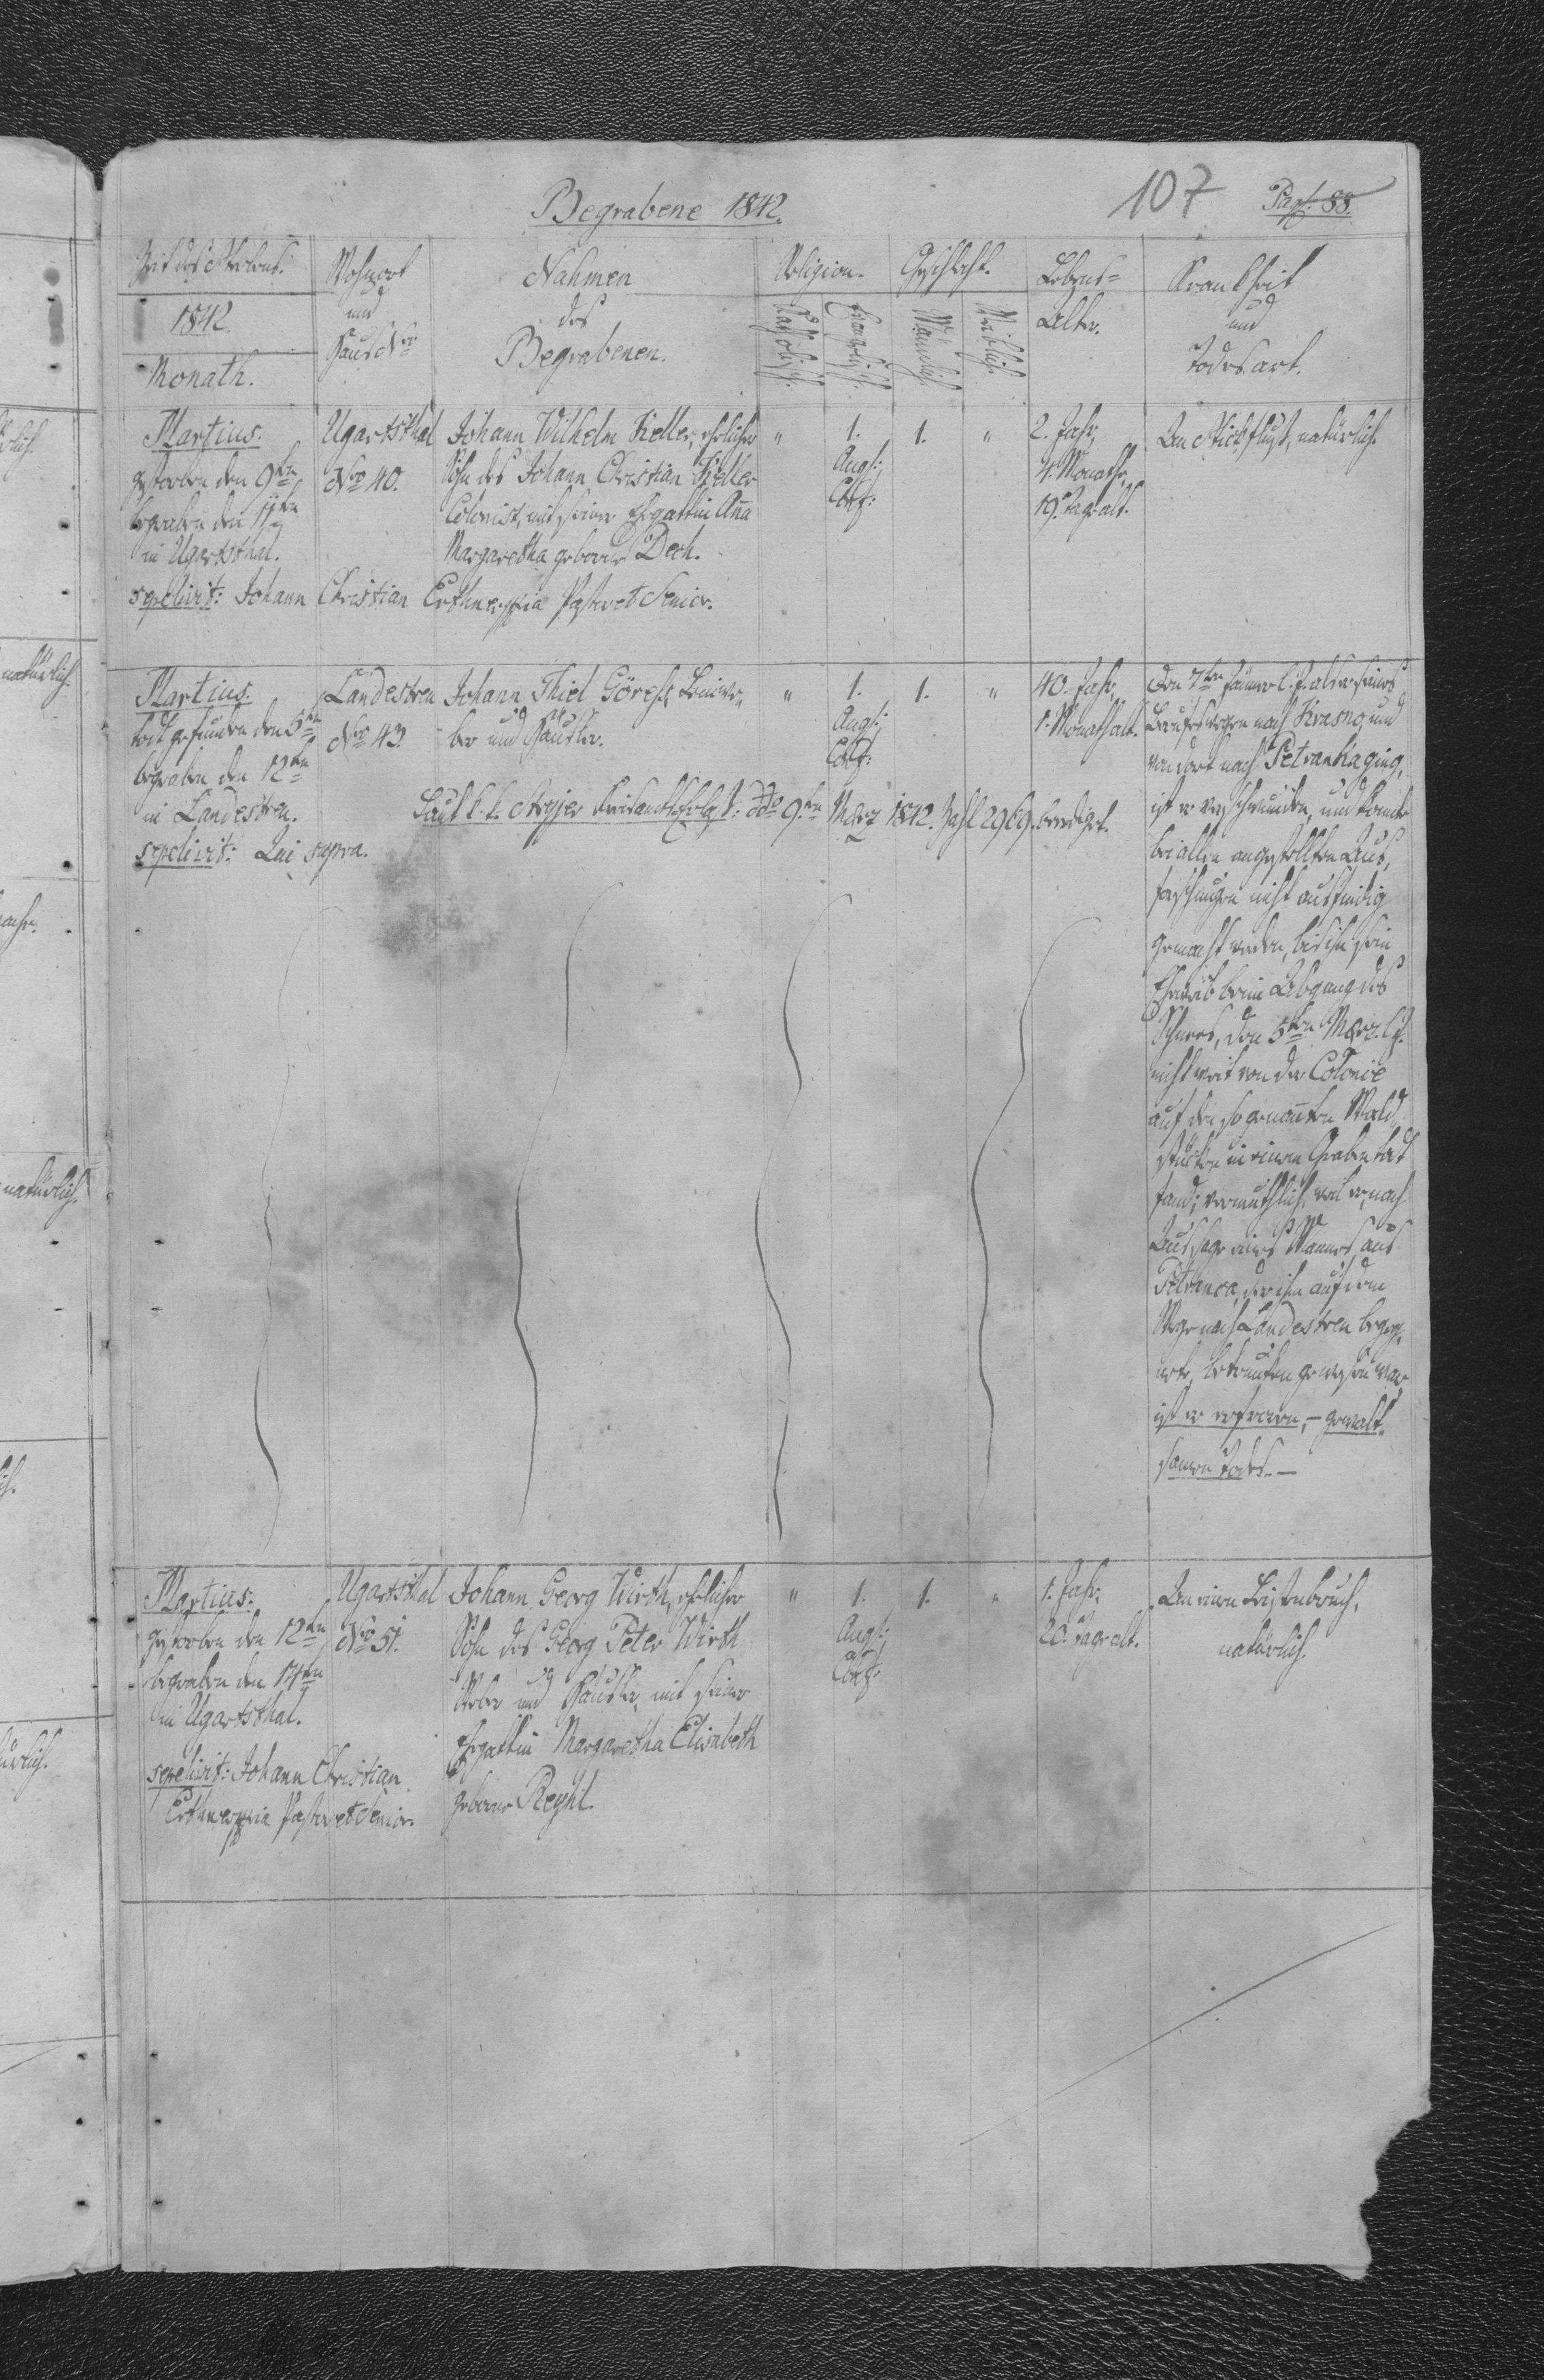 Begrabene 1842.
107
Pag: 88.
Zeit des Sterbens.
1842.
Monath.
Wohnort
und
Haus Nro
Nahmen
des
Begrabenen.
Religion.
Katholisch.
Evangelisch.
Geschlecht.
Männlich.
Weiblich.
Lebens=
Alter.
Krankheit
und
Todesart.
Martius.
gestorben den 9ten
begraben den 11ten
in Ugartsthal.
sepelivit: Johann Christian Pastor et Senior.
Ugartsthal
Nro 40.
Johann Wilhelm Keller, ehelicher
Sohn des Johann Christian Keller
Colonist, mit seiner Ehgattin Aña
Margaretha geborne Dech.
"
1.
Augs:
Conf:
1.
"
2. Jahr,
4. Monathe,
19. Tage alt.
Am Stickfluß, natürlich.
Martius.
todt gefunden den 5ten
begraben den 12ten
in Landestreu.
sepelivit: Qui supra.
Landestreu
Nro 43.
Johann Thiel Göres, Leinwe„
ber und Häusler.
Laut k. k. Stryjer Kreisamts Erlaß: ddo 9ten März 1842. Zahl 2969. beerdiget.
"
1.
Augs:
Conf:
1.
"
40. Jahr,
1. Monath alt.
Den 7ten Jänner l. J. als er seines
Berufs wegen nach Krasna, und
von dort nach Petranka ging,
ist er verschwunden, und konnte
bei allen angestellten Aus„
forschungen nicht ausfindig
gemacht werden, bis ihn sein
Eheweib beim Abgang des
Schnees, den 5ten März l. J.
nicht weit von der Colonie
auf den sogenañten Wald„
stücken in einem Graben todt
fand; vermuthlich weil er, nach
Aussage eines Mannes aus
Petranca, der ihm auf dem
Wege nach Landestreu begeg„
nete, betrunken gewesen war,
ist er erfroren, – gewalt„
samen Todes. –
Martius.
gestorben den 12ten
begraben den 14ten
in Ugartsthal.
sepelivit: Johann Christian
Pastor et Senior.
Ugartsthal
Nro 51.
Johann Georg Wirth, ehelicher
Sohn des Georg Peter Wirth
Weber und Häusler, mit seiner
Ehgattin Margaretha Elisabeth
geborne
"
1.
Augs:
Conf:
1.
"
1. Jahr,
20. Tage alt.
An einem Leistenbruch,
natürlich.